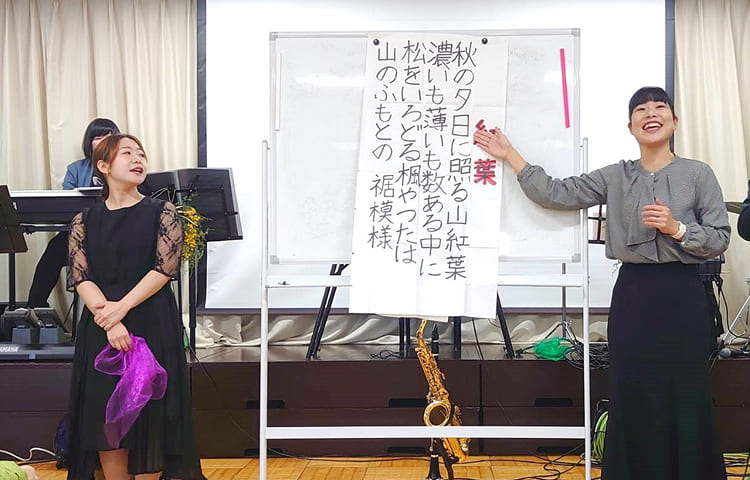 葉
秋の夕日に照る山紅葉
濃いも薄いも数ある中に
松をいろどる楓やつたは
山のふもとの 裾模様
YAMAHA